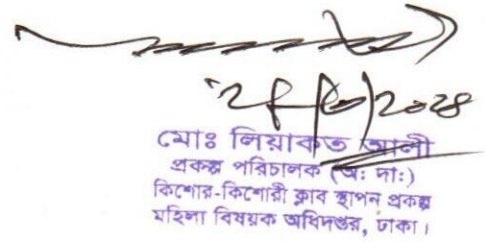 মোঃ লিয়াকত আলী
প্রকল্প পরিচালক (অ: দা:)
কিশোর-কিশোরী ক্লাব স্থাপন প্রকল্প
মহিলা বিষয়ক অধিদপ্তর, ঢাকা।